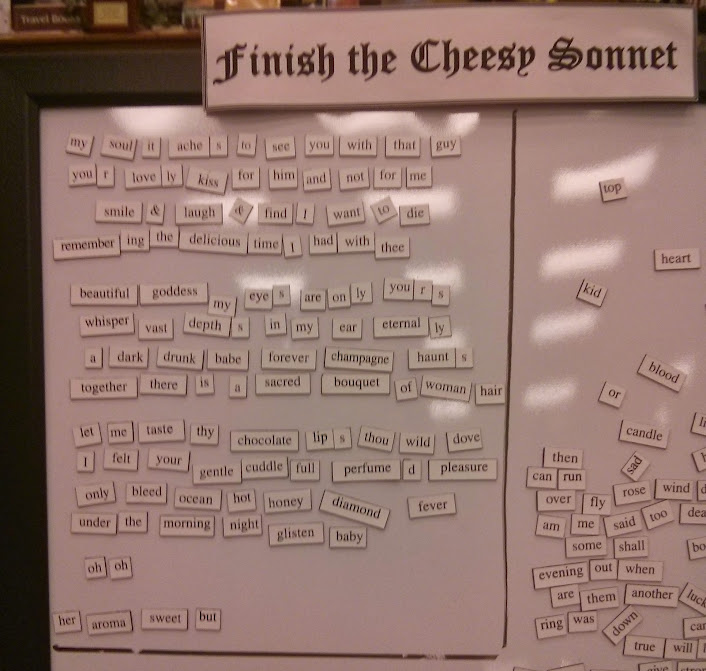 Travel Books
Finish the Cheesy Sonnet
my soul it ache s to see you with that guy
you r love ly kiss for him and not for me
smile & laugh & find I want to die
remember ing the delicious time I had with thee
beautiful goddess my eye s are on ly you r s
whisper vast depth s in my ear eternal ly
a dark drunk babe forever champagne haunt s
together there is a sacred bouquet of woman hair
let me taste thy chocolate lip s thou wild dove
I felt your gentle cuddle full perfume d pleasure
only bleed ocean hot honey diamond fever
under the morning night glisten baby
oh oh
her aroma sweet but
top
heart
kid
blood
or
candle
then sad
can run
over fly rose wind
am me said too
some shall
evening out when
are them another
ring was down
true will